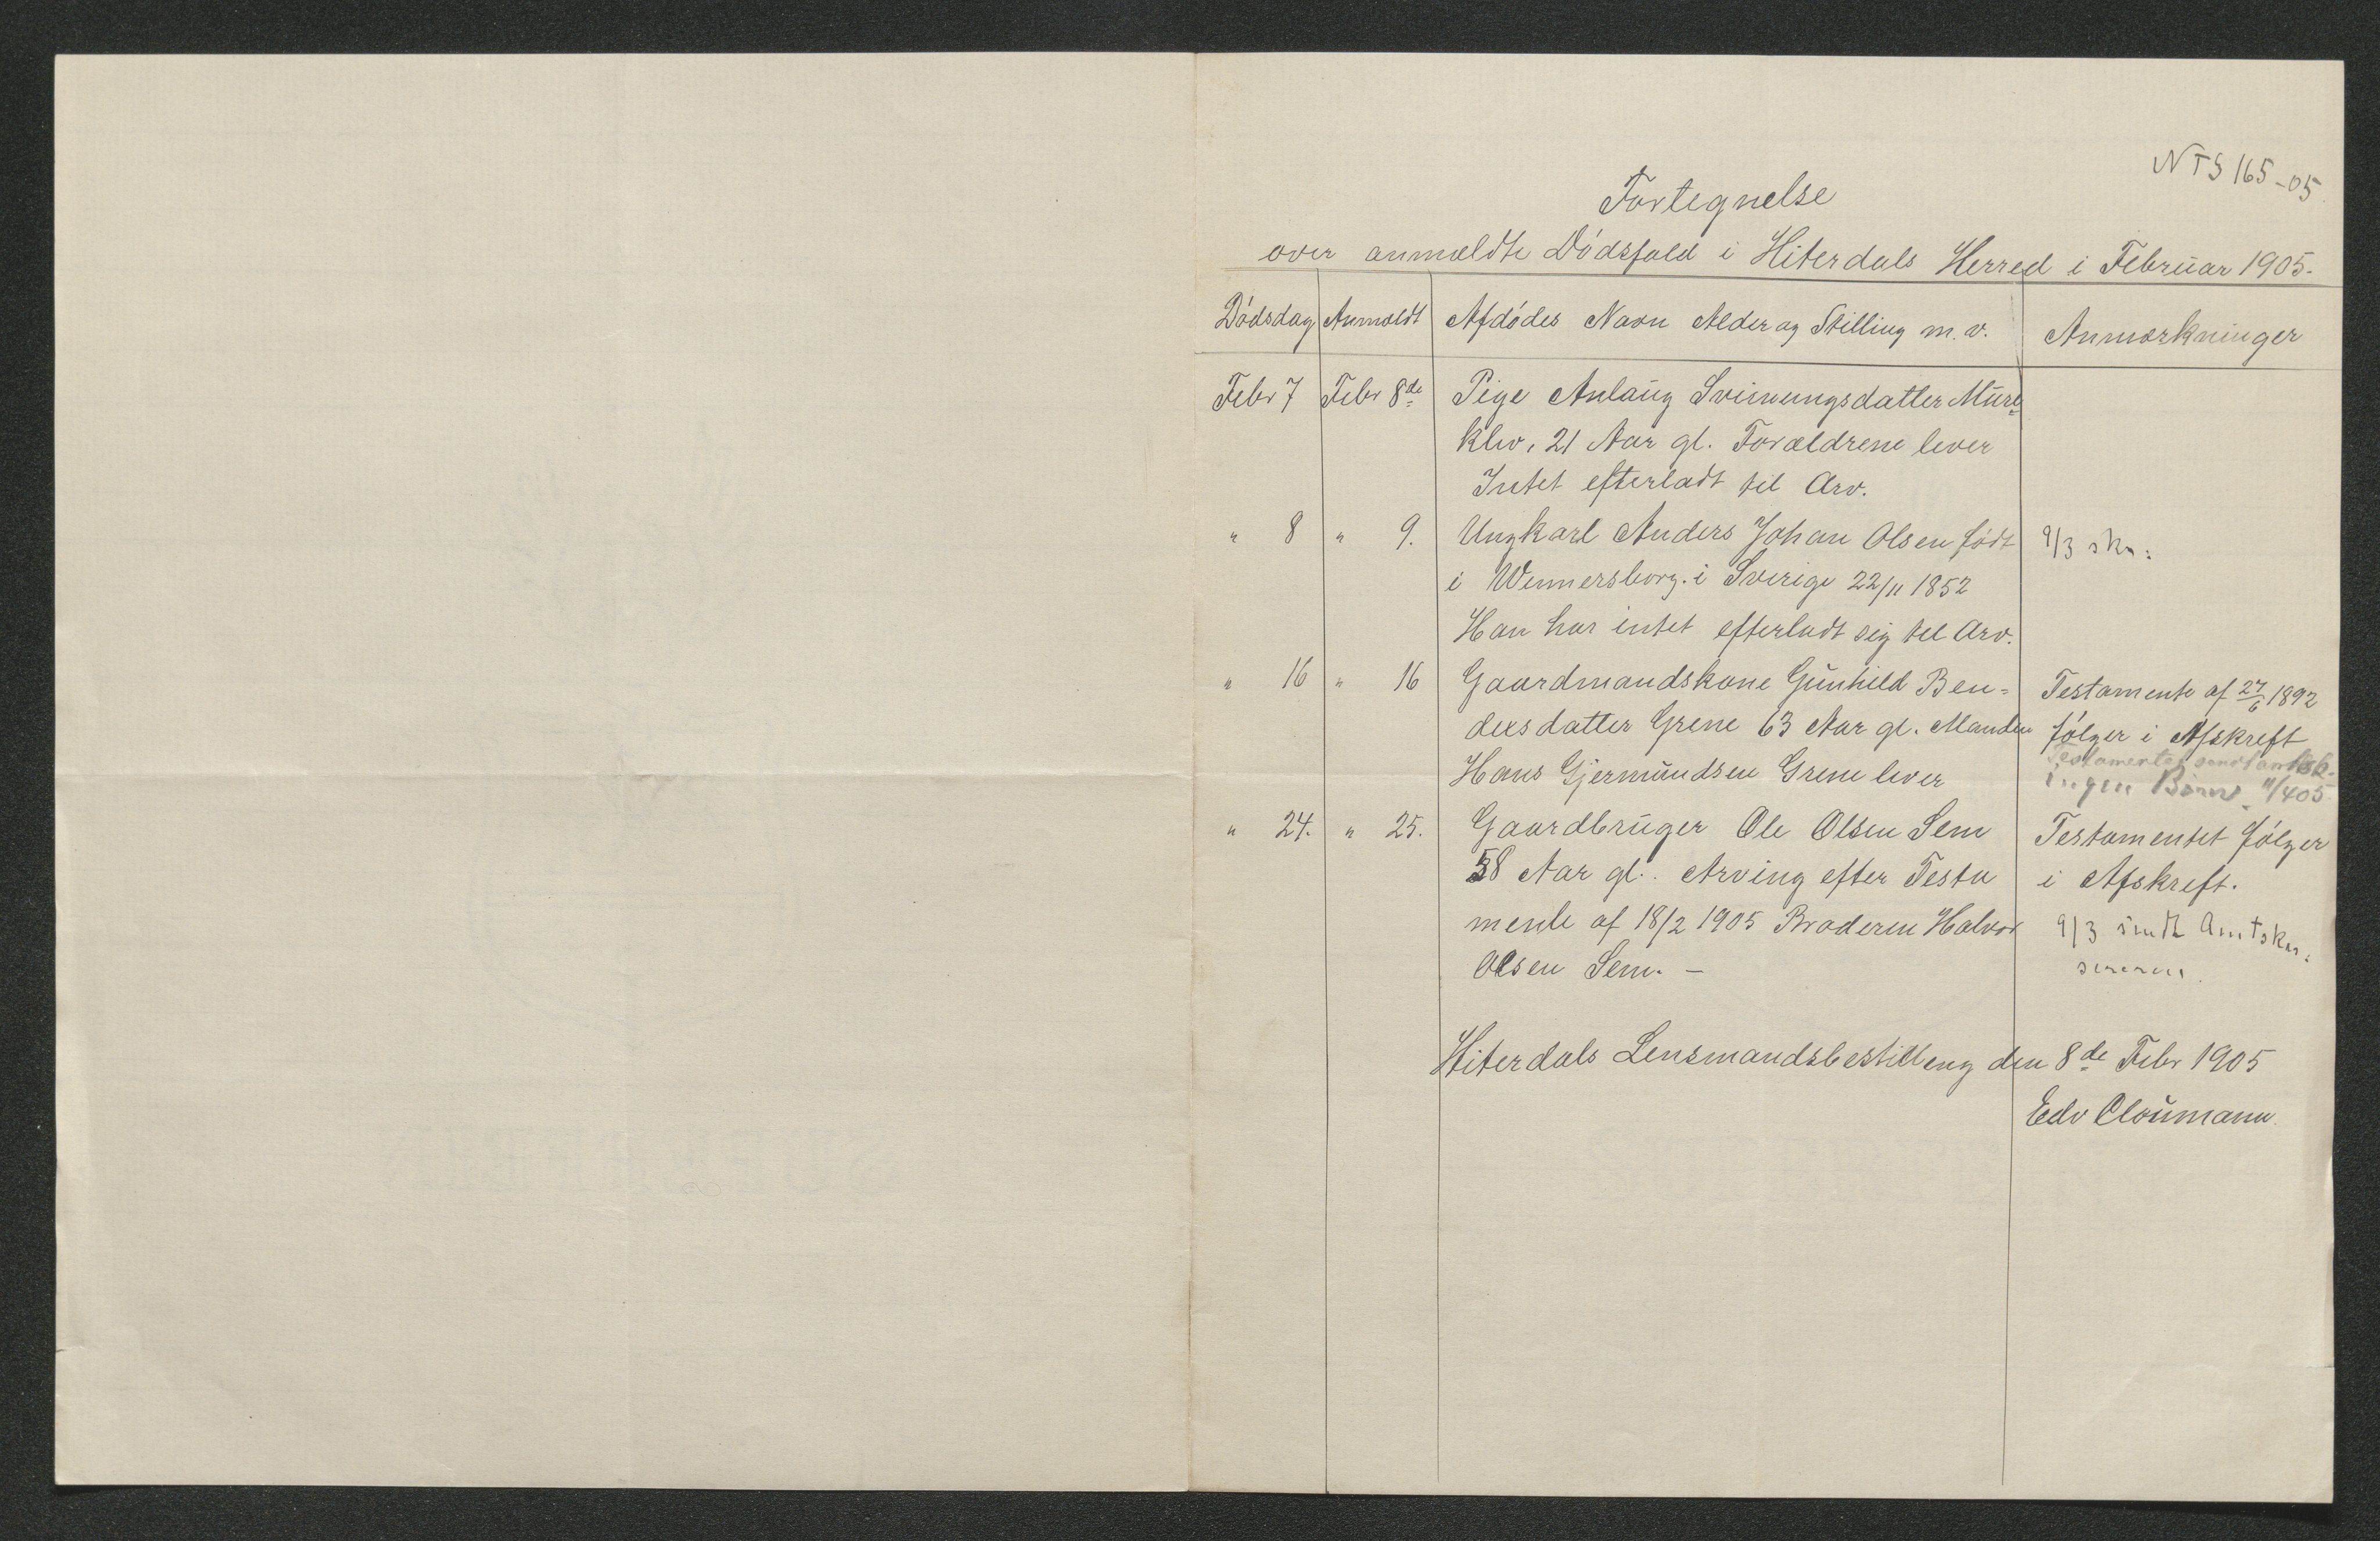 NTS 165-05
Fortegnelse
over anmældte Dödsfald i Hiterdals Herred i Februar 1905.
Dödsdag Anmældt Afdödes Navn Alder og Stilling m.v. Anmærkninger
Febr 7 Febr 8de Pige Anlaug Svinungsdatter Mure
klev, 21 Aar gl. Forældrene lever
Intet efterladt til Arv.
" 8 " 9. Ungkarl Anders Johan Olsen født 9/3
i Wennersborg. i Sverige 22/11 1852
Han har intet efterladt sig til Arv.
" 16 " 16 Gaardmandskone Gunhild Ben= Testamente af 27/6 1892
dixsdatter Grene 63 Aar gl. Manden følger i Afskreft
Hans Gjermundsen Grene lever Testamentet sendt
ingen Börn. 11/4 05
" 24. " 25. Gaardbruger Ole Olsen Sem Testamentet følger
58 Aar gl. Arving efter Testa i Afskreft.
mente af 18/2 1905 Broderen Halvor 9/3 sendt Amtskas=
Olsen Sem. - sereren
Hiterdals Lensmandsbestilleng den 8de Febr 1905
Edv Cloumann